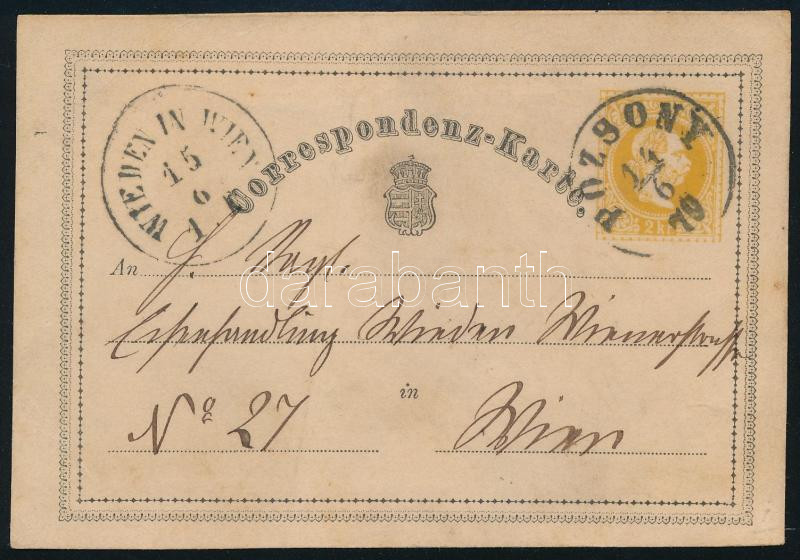 WIEDEN IN WIEN
15
6
1
Correspondenz-Karte.
POZSONY
14
6
70
2 kr
An
darabanth
Eisenhandlung Wieden Wienerstrasse
No 27
in
Wien